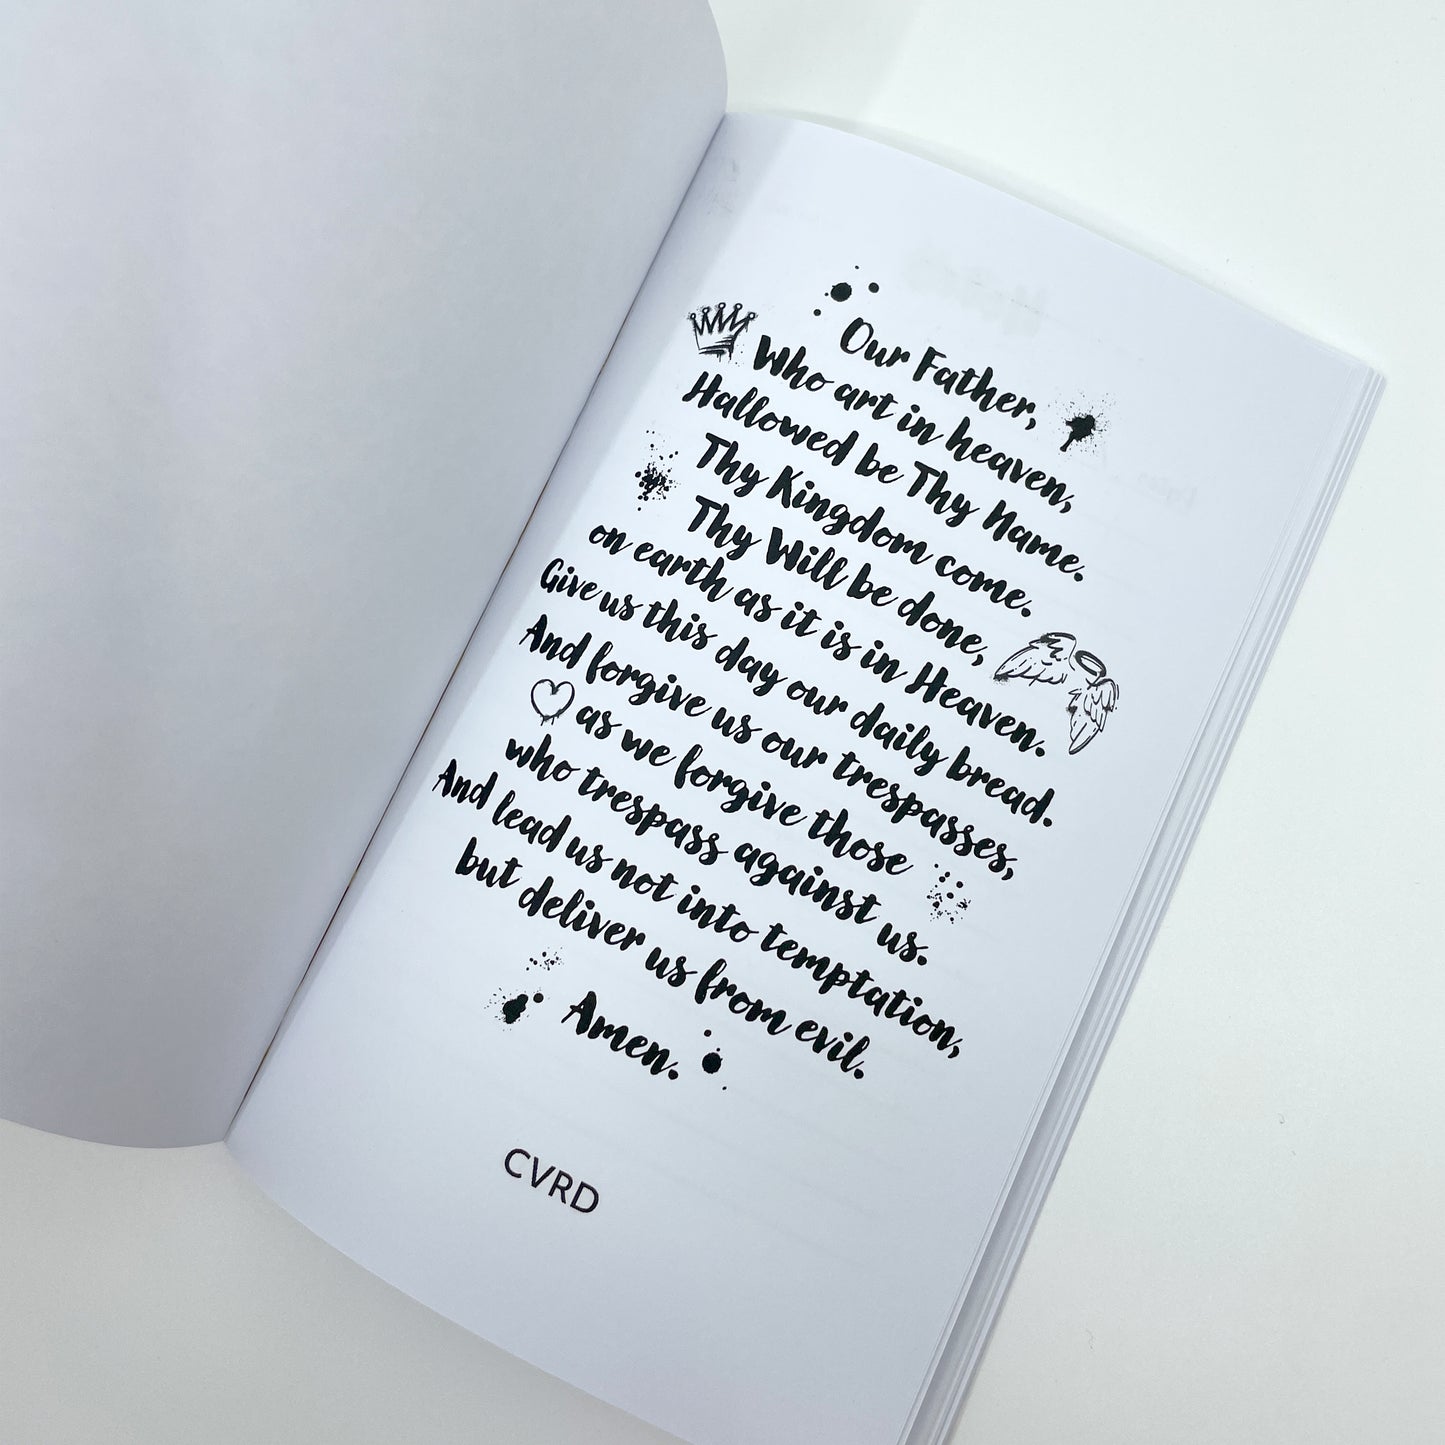 Our Father,
Who art in heaven,
Hallowed be Thy Name.
Thy Kingdom come.
Thy Will be done,
on earth as it is in Heaven.
Give us this day our daily bread.
And forgive us our trespasses,
as we forgive those
who trespass against us.
And lead us not into temptation,
but deliver us from evil.
Amen.
CVRD